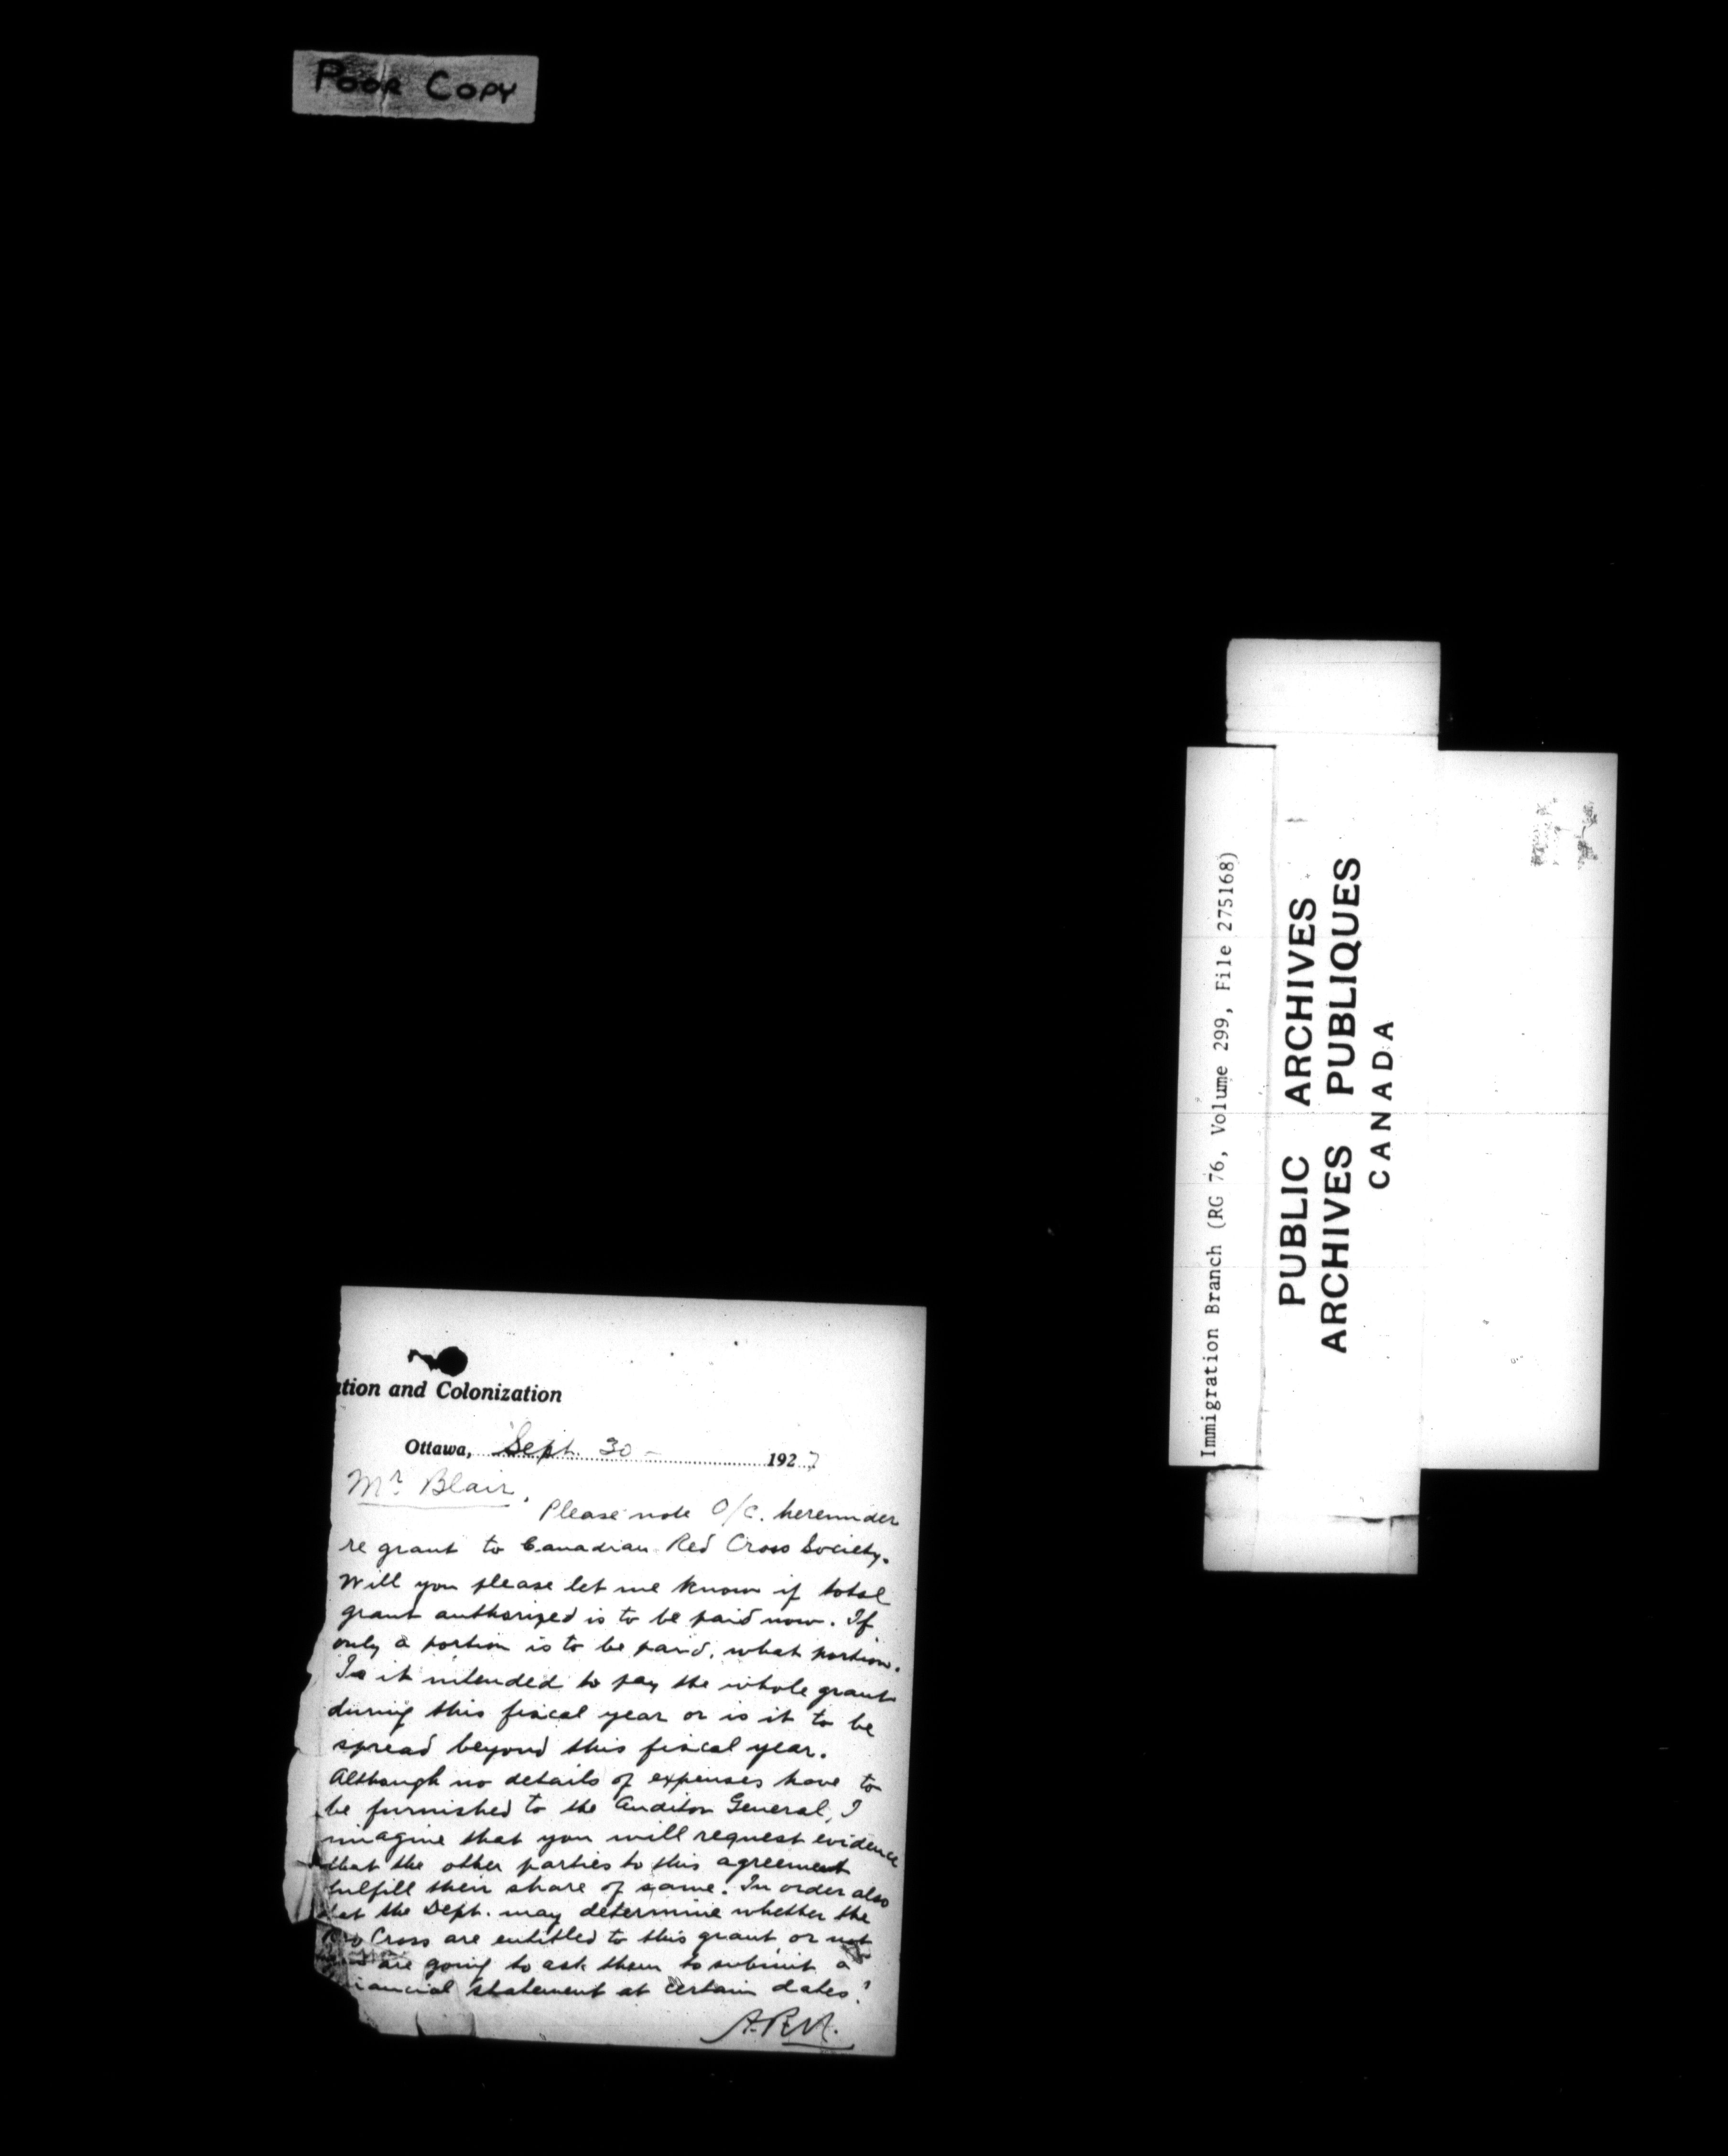 POOR COPY
ation and Colonization
Ottawa, Sept. 30 - 1927
Mr. Blair.
Please note O/C. hereunder
re grant to Canadian Red Cross Society.
Will you please let me know if total
grant authorized is to be paid now. If
only a portion is to be paid, what portion.
Is it intended to pay the whole grant
during this fiscal year or is it to be
spread beyond this fiscal year.
Although no details of expenses have to
be furnished to the Auditor General, I
imagine that you will request evidence
that the other parties to this agreement
fulfill their share of same. In order also
that the Dept. may determine whether the
Cross are entitled to this grant or not
are going to ask them to submit a
nancial statement at certain dates?
Immigration Branch (RG 76, Volume 299, File 275168)
PUBLIC ARCHIVES
ARCHIVES PUBLIQUES
CANADA